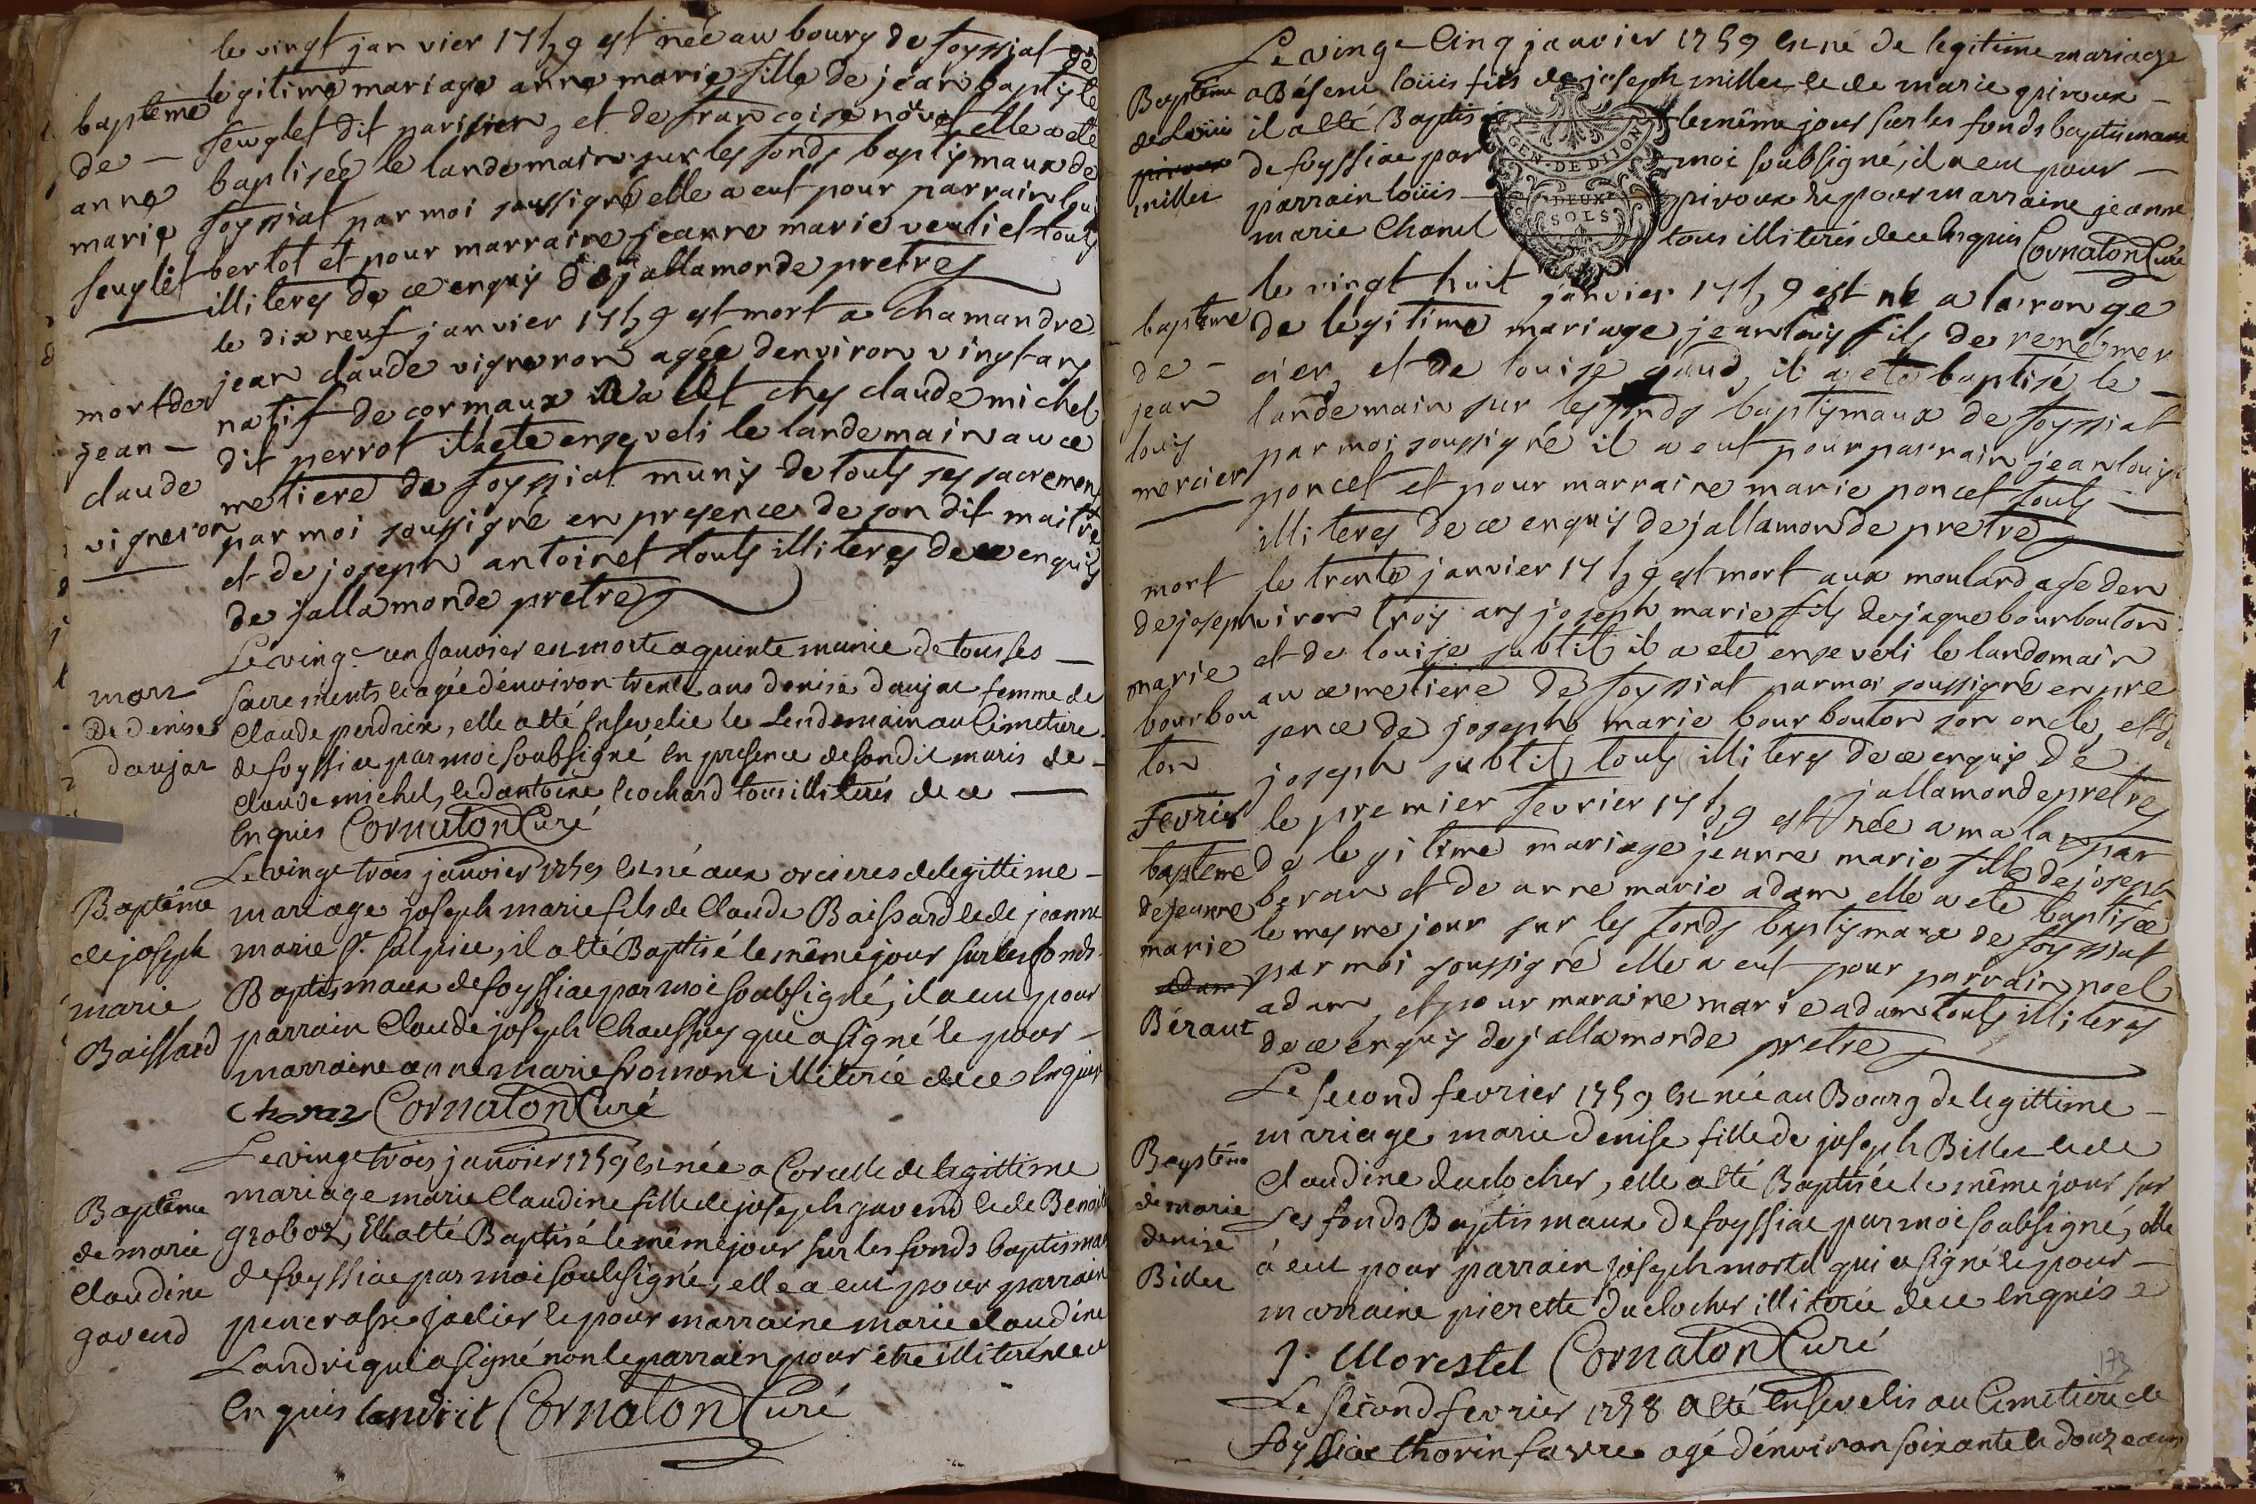 le vingt janvier 1759 est née au bourg de foyssiat de
legitime mariage anne marie fille de jean baptiste
feuglet dit parisien, et de francoise novel elle a ete
baptisée le landemain sur les fonds baptismaux de
foyssiat par moi soussigné elle a eut pour parrain loui
bertot et pour marraine jeanne marie veuliet touts
illiterés de ce enquis dejallamonde pretre
bapteme
de —
anne
marie
feuglet
le dix neuf janvier 1759 est mort a chamandre
jean claude vigneron agée denviron vingt ans
natif de cormaux chez claude michel
dit perrot il a ete enseveli le landemain au ce
metiere de foyssiat munis de touts ses sacremens
par moi soussigné en presence de son dit maitre
et de joseph antoinet touts illiterés de ce enquis
dejallamonde pretre
mort de
jean —
claude
vigneron
Le vingt un Janvier est morte a quinte munie de tous ses —
sacrements et agée d'environ trente ans denise daujat femme de
Claude perdrix, elle a été Ensevelie le Lendemain au Cimetiere
de foyssiat par moi soubsigné En presence de son dit maris de —
Claude michel, et d'antoine cochard tous illiterés de ce —
Enquis Cornaton Curé
mort
de denise
daujat
Le vingt trois janvier 1759 est né aux orcieres de legittime —
mariage joseph marie fils de Claude Baissard et de jeanne
marie St. Sulpice, il a été Baptisé le même jour sur les fonds
Baptismaux de foyssiat par moi soubsigné, il a eu pour
parrain Claude joseph Chaussas qui a signé et pour —
marraine anne marie fromont illiterée de ce Enquis
Cornaton Curé
Baptême
de joseph
marie
Baissard
Le vingt trois janvier 1759 est née a Corcelle de legittime
mariage marie Claudine fille de joseph gavend et de Benoite
groboz, Elle a été Baptisé le même jour sur les fonds baptismaux
de foyssiat par moi soubsigné, elle a eu pour parrain
pencrasse jaclier et pour marraine marie claudine
Landri qui a signé non le parrain pour être illiteré de ce
Enquis landrit Cornaton Curé
Baptême
de marie
Claudine
gavend
Le vingt Cinq janvier 1759 est né de legitime mariage
a Béseni loüis fils de joseph millet et de marie piroux —
il a été Baptisé le même jour sur les fonds baptismaux
de foyssiat par moi soubsigné, il a eu pour —
parrain loüis piroux et pour marraine jeanne
marie Chanel tous illiterés de ce Enquis Cornaton Curé
Baptême
de loüis
piroux
millet
GEN. DE DIJON
DEUX
SOLS
le vingt huit janvier 1759 est né a la ronge
de legitime mariage jean louis fils de renémer
cier, et de louise gaud, il a ete baptisé le —
landemain sur les fonds baptismaux de foyssiat
par moi soussigné il a eut pour parrain jean louis
poncet et pour marraine marie poncet touts —
illiterés de ce enquis dejallamonde pretre
bapteme
de —
jean
louis
mercier
le trente janvier 1759 est mort aux moulard age den
viron trois ans joseph marie fils de jaque bourbouton
et de louise subtil, il a ete enseveli le landemain
au cemetiere de foyssiat par moi soussigné en pre
sence de joseph marie bourbouton son oncle, et de
joseph subtil, touts illiterés de ce enquis de
jallamonde pretre
mort
de joseph
marie
bourbou
ton
fevrier
le premier fevrier 1759 est née a mala par
de legitime mariage jeanne marie fille de joseph
berau et de anne marie adam elle a ete baptisée
le mesme jour sur les fonds baptismaux de foyssiat
par moi soussigné elle a eut pour parrain noel
adam, et pour maraine marie adam touts illiterés
de ce enquis dejallamonde pretre
bapteme
de jeanne
marie
adam
Béraut
Le second fevrier 1759 est née au Bourg de legittime —
mariage marie denise fille de joseph Billet et de
Claudine duclocher, elle a été Baptisée le même jour sur
Les fonds Baptismaux de foyssiat par moi soubsigné, elle
a eut pour parrain joseph mortel qui a signé et pour —
marraine pierette duclocher illiterée de ce Enquis
J. Morestel Cornaton Curé
Baptême
de marie
denise
Billet
173
Le second fevrier 1758 a été Ensevelis au Cimetiere de
foyssiat thorin favre agé d'environ soixante et douze ans